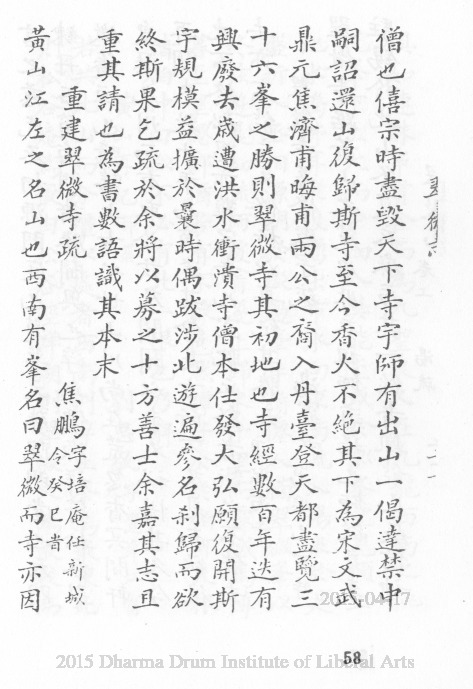 僧也僖宗時盡毀天下寺宇師有出山一偈達禁中
嗣詔還山復歸斯寺至今香火不絕其下為宋文武
鼎元焦濟甫晦甫兩公之裔入丹臺登天都盡覽三
十六峯之勝則翠微寺其初地也寺經數百年迭有
興廢去歲遭洪水衝潰寺僧本仕發大弘願復開斯
宇規模益擴於曩時偶跋涉北遊遍參名剎歸而欲
終斯果乞疏於余將以募之十方善士余嘉其志且
重其請也為書數語識其本末
重建翠微寺疏 焦鵬字培庵仕新城令癸巳
黃山江左之名山也西南有峯名曰翠微而寺亦因
2015-04-17
58
2015 Dharma Drum Institute of Liberal Arts